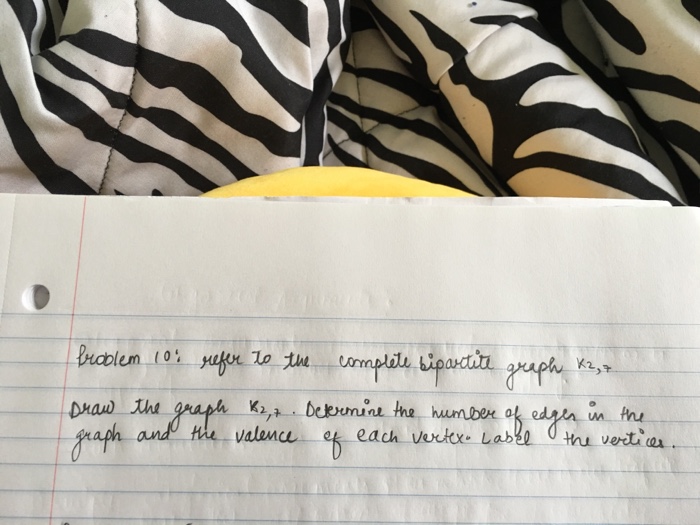 Problem 10: refer to the complete bipartite graph K2,7
Draw the graph K2,7. Determine the number of edges in the
graph and the valence of each vertex. Label the vertices.